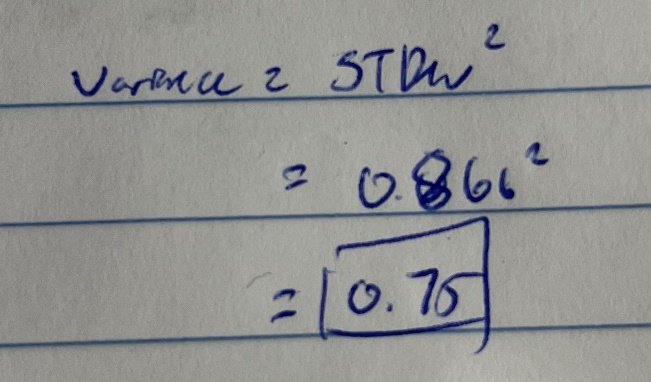 Variance = STDev²
= 0.866²
= 0.75